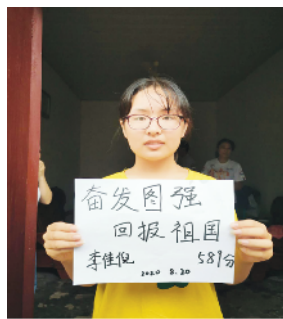 奋发图强
回报祖国
李佳倪 589分
2020 8.20